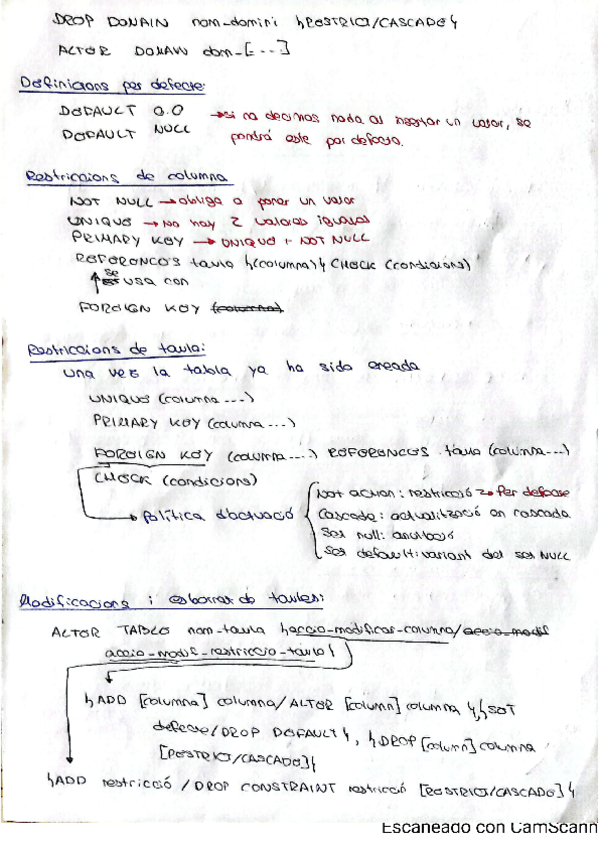 DROP DOMAIN nom_domini {RESTRICT/CASCADE}
ALTER DOMAIN dom_[...]
Definicions per defecte:
DEFAULT 0.0 → si no decimos nada al insertar un valor, se
DEFAULT NULL pondrá este por defecto.
Restriccions de columna
NOT NULL → obliga a poner un valor
UNIQUE → No hay 2 valores iguales
PRIMARY KEY → UNIQUE + NOT NULL
REFERENCES taula {(columna)} CHECK (condicions)
se usa con
FOREIGN KEY (columna)
Restriccions de taula:
una vez la tabla ya ha sido creada
UNIQUE (columna ...)
PRIMARY KEY (columna ...)
FOREIGN KEY (columna ...) REFERENCES taula (columna ...)
CHECK (condicions)
→ Política d'actuació
Not action: restricció → Per defecte
Cascade: actualització en cascada
Set null: anulació
Set default: variant del set NULL
Modificacions i esborrar de taules:
ALTER TABLE nom-taula {accio-modificar-columna/accio-modif
accio-modif-restriccio-taula}
{ADD [columna] columna/ALTER [column] columna {SET
defecte/DROP DEFAULT}, {DROP [column] columna
[RESTRICT/CASCADE]}
{ADD restricció / DROP CONSTRAINT restricció [RESTRICT/CASCADE]}
Escaneado con CamScann